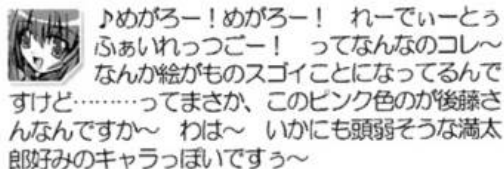 ♪めがろー！めがろー！　れーでぃーとぅ
ふぁいれっつごー！　ってなんなのコレ〜
なんか絵がものスゴイことになってるんで
すけど………ってまさか、このピンク色のが後藤さ
んなんですか〜　わは〜　いかにも頭弱そうな満太
郎好みのキャラっぽいですぅ〜